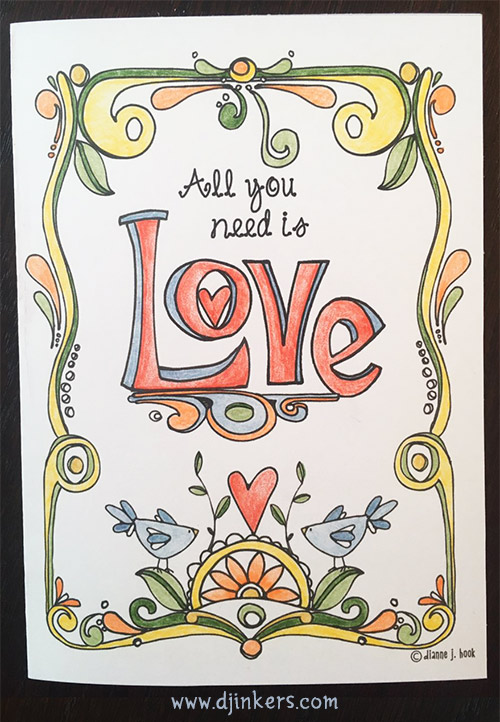 All you
need is
Love
© dianne j. hook
www.djinkers.com